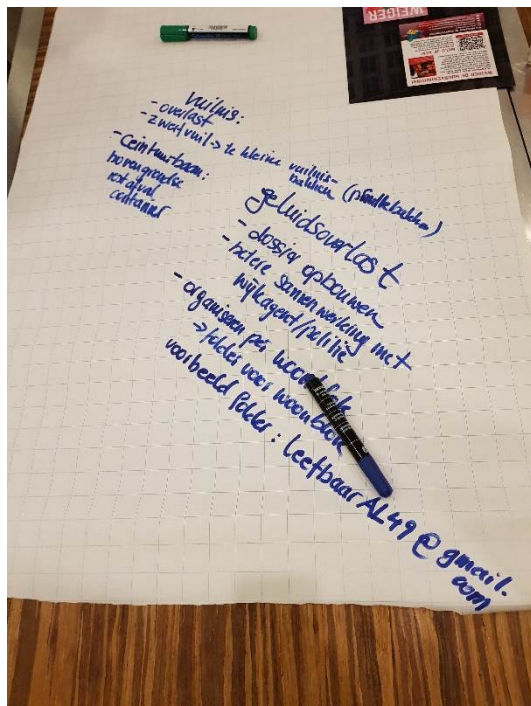 WEIGER
vuilnis:
- overlast
- zwerfvuil -> te kleine vuilnis- (prullebakken)
bakken
- Ceintuurbaan:
bovengrondse
restafval
container
geluidsoverlast
- dossier opbouwen
- betere samenwerking met
wijkagent/politie
- organiseren per
-> folder voor woonblok
voorbeeld folder: leefbaarAL49@gmail.
com